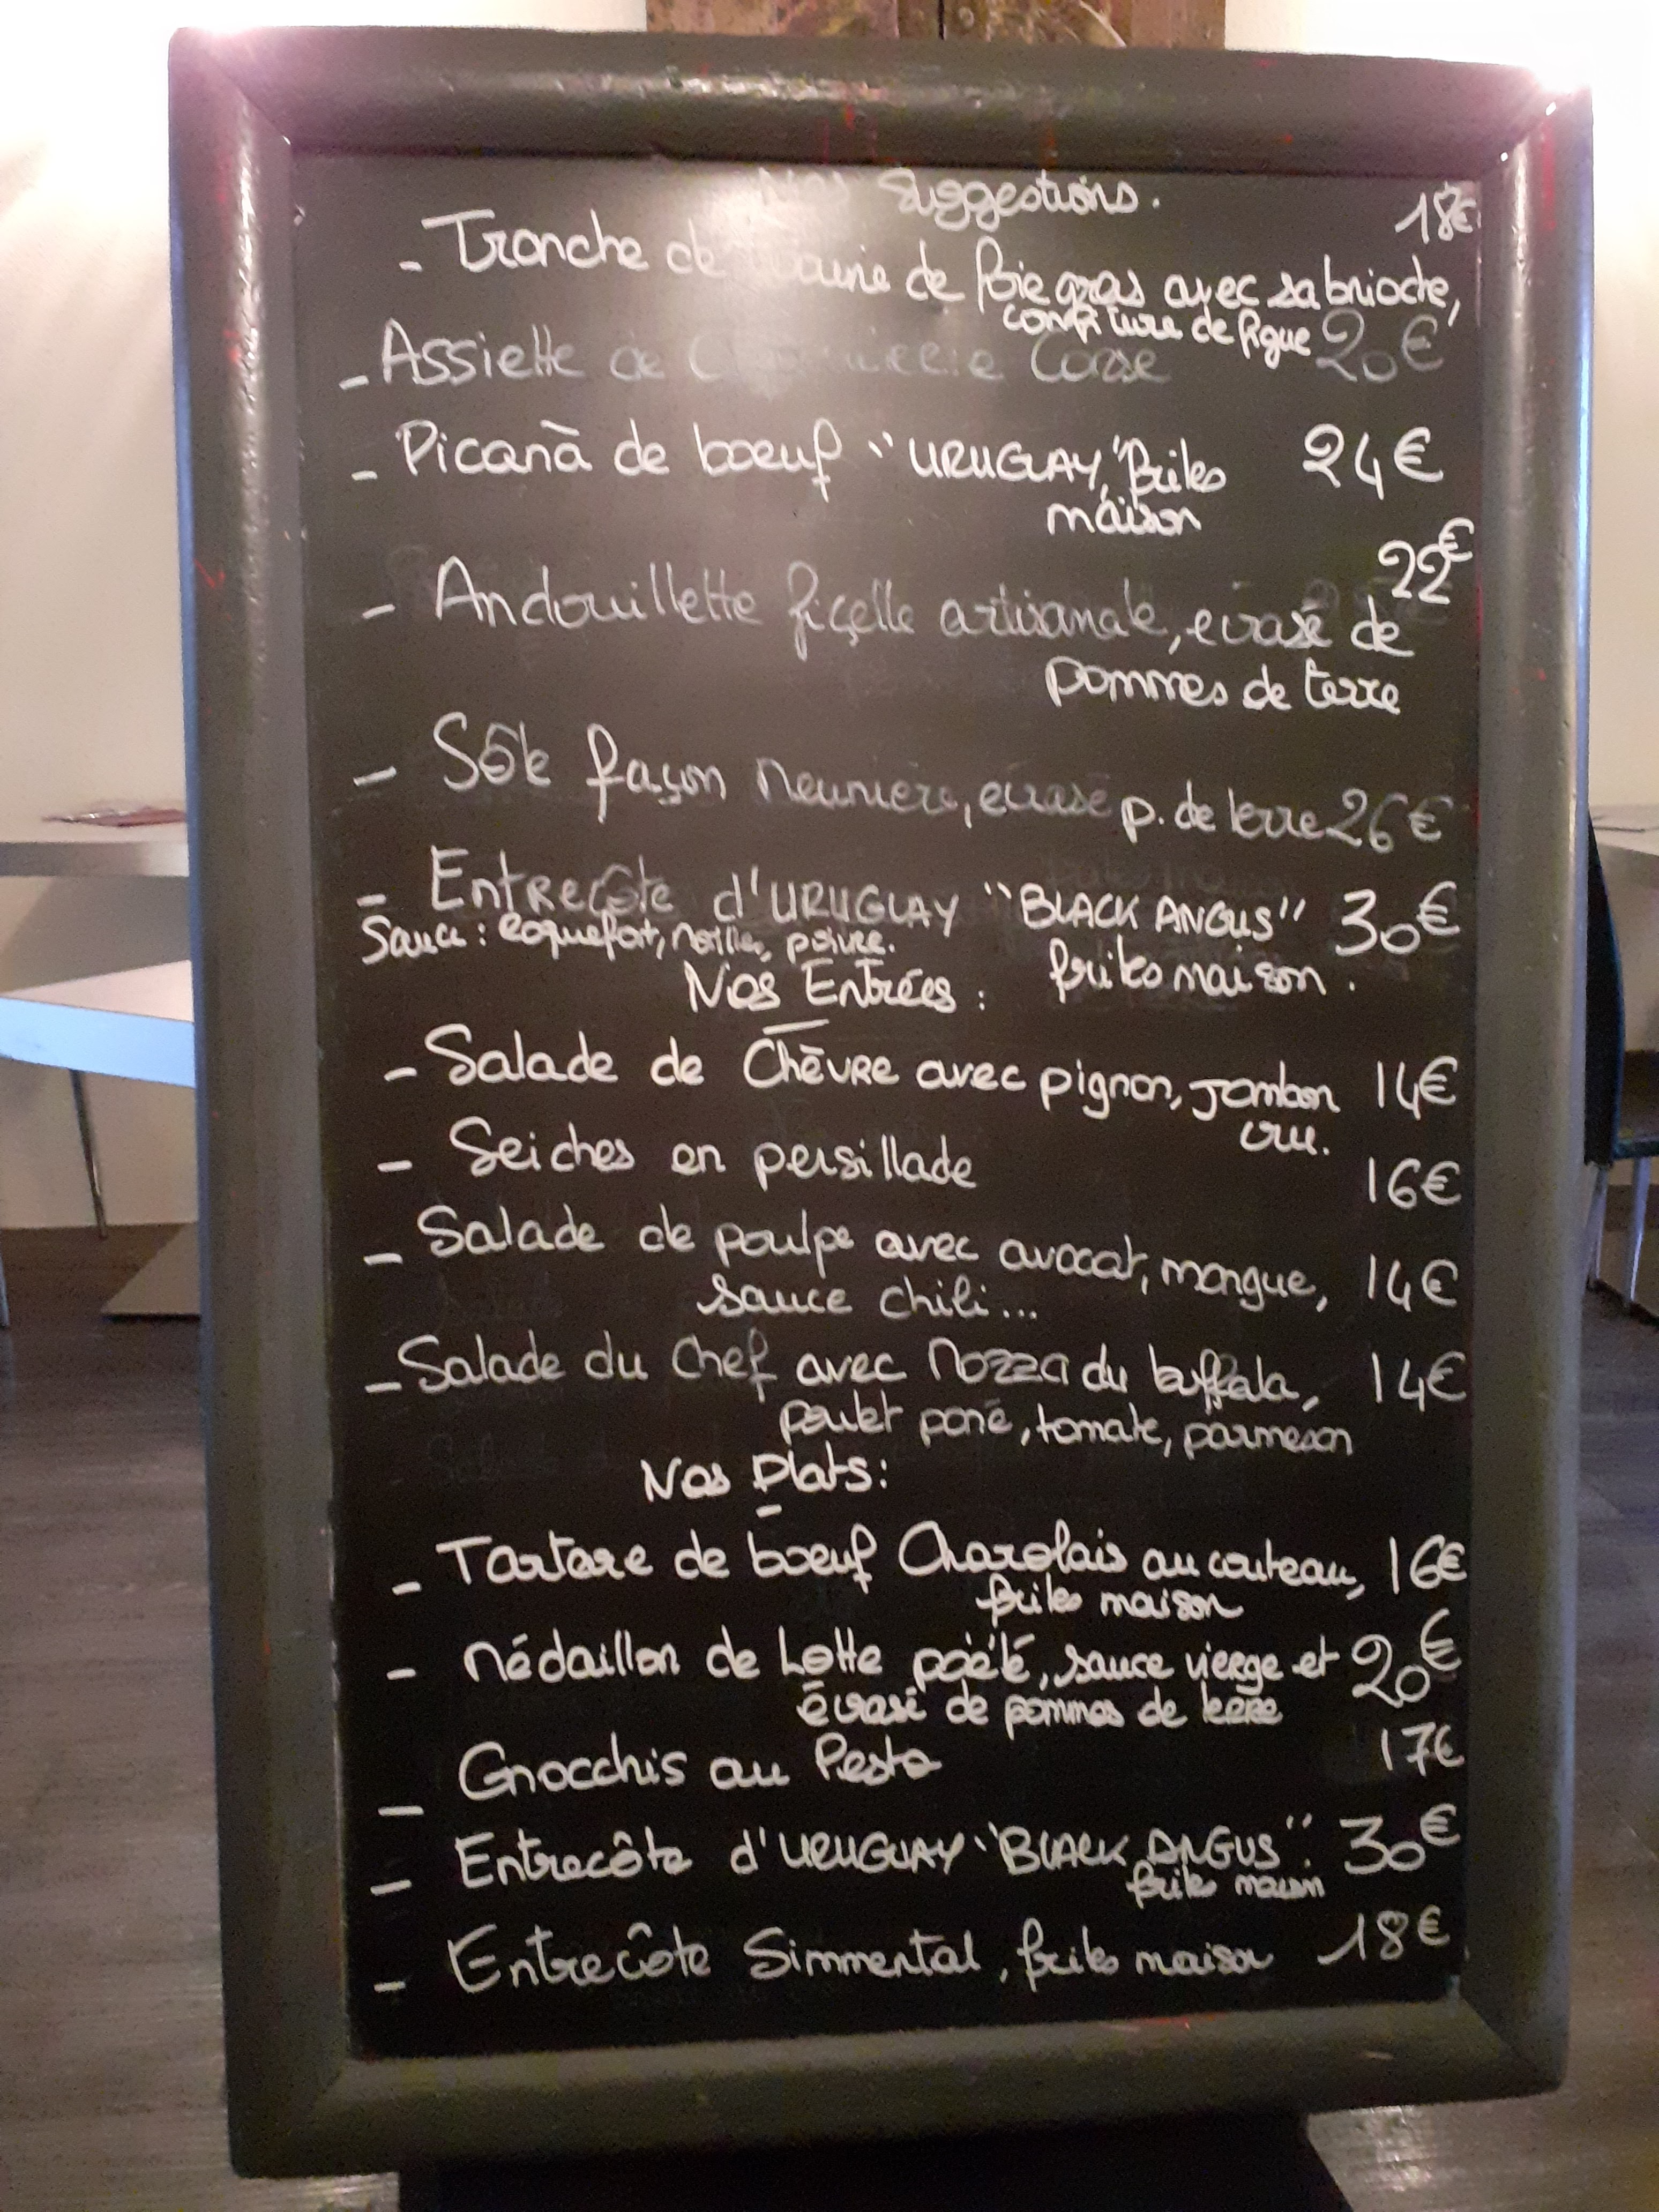 Nos Suggestions.
- Tranche de de foie gras avec sa brioche, 18€
confiture de figue
- Assiette de Corse 20€
- Picanã de boeuf "URUGUAY", frites 24€
maison
- Andouillette ficelle artisanale, écrasé de 22€
pommes de terre
- Sôle façon Meunière, écrasé p. de terre 26€
- Entrecôte d'URUGUAY "BLACK ANGUS" 30€
Sauce : roquefort, morilles, poivre.
frites maison.
Nos Entrées :
- Salade de Chèvre avec pignon, Jambon 14€
cru.
- Seiches en persillade 16€
- Salade de poulpe avec avocat, mangue, 14€
sauce chili...
- Salade du Chef avec Mozza du buffala, 14€
poulet pané, tomate, parmesan
Nos Plats :
- Tartare de boeuf Charolais au couteau, 16€
frites maison
- Médaillon de Lotte poêlé, sauce vierge et 20€
écrasé de pommes de terre
- Gnocchis au Pesto 17€
- Entrecôte d'URUGUAY "BLACK ANGUS". 30€
frites maison
- Entrecôte Simmental, frites maison 18€